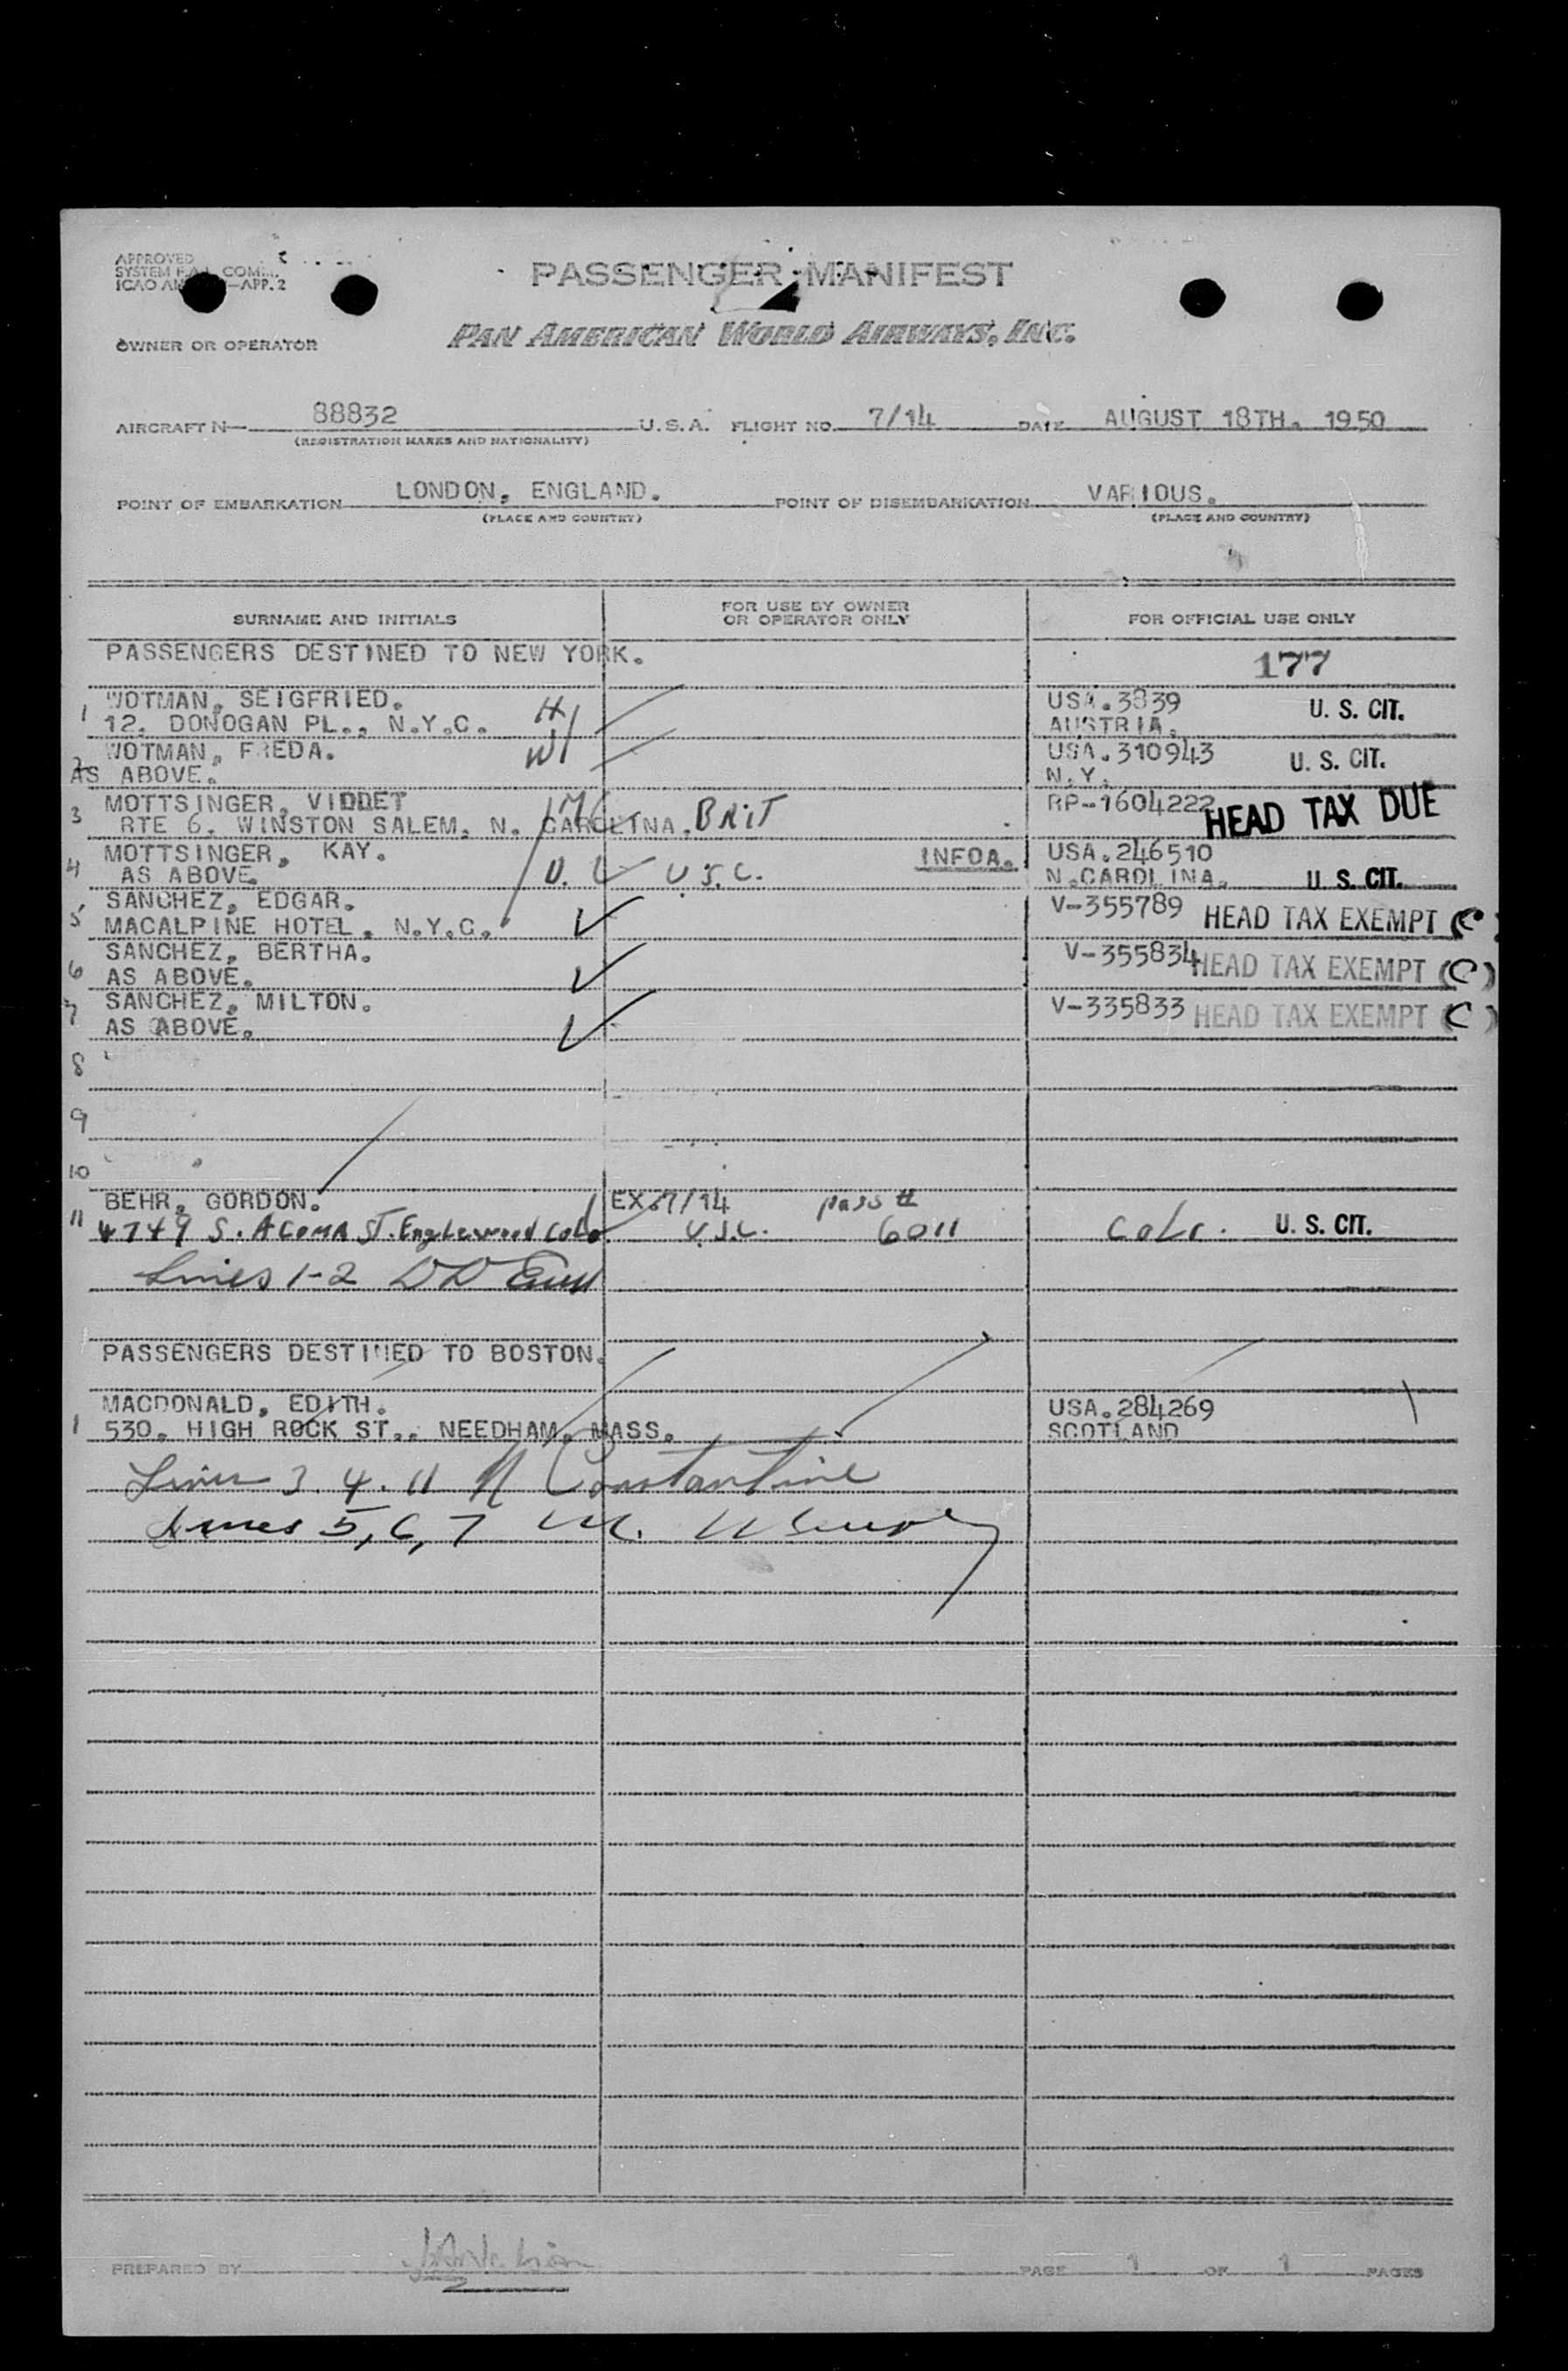 APPROVED
SYSTEM F.A.L. COMM.
ICAO —APP. 2
PASSENGER MANIFEST
OWNER OR OPERATOR
PAN AMERICAN WORLD AIRWAYS, INC.
AIRCRAFT N— 88832 U.S.A. FLIGHT NO. 7/14 DATE AUGUST 18TH. 1950
(REGISTRATION MARKS AND NATIONALITY)
POINT OF EMBARKATION LONDON, ENGLAND. POINT OF DISEMBARKATION VARIOUS.
(PLACE AND COUNTRY) (PLACE AND COUNTRY)
SURNAME AND INITIALS FOR USE BY OWNER OR OPERATOR ONLY FOR OFFICIAL USE ONLY
PASSENGERS DESTINED TO NEW YORK. 177
1 WOTMAN, SEIGFRIED. H USA.3839 U. S. CIT.
12. DONOGAN PL., N.Y.C. AUSTRIA.
2 WOTMAN, FREDA. W USA.310943 U. S. CIT.
AS ABOVE. N.Y.
3 MOTTSINGER, VIDDET M RP-1604222 HEAD TAX DUE
RTE 6. WINSTON SALEM. N. CAROLINA. BRIT
4 MOTTSINGER, KAY. INFOA. USA.246510
AS ABOVE. U. U.S.C. N.CAROLINA. U. S. CIT.
5 SANCHEZ, EDGAR. V-355789 HEAD TAX EXEMPT (C)
MACALPINE HOTEL, N.Y.C.
6 SANCHEZ, BERTHA. V-355834 HEAD TAX EXEMPT (C)
AS ABOVE.
7 SANCHEZ, MILTON. V-335833 HEAD TAX EXEMPT (C)
AS ABOVE.
8
9
10
BEHR, GORDON. EX.7/14 pass #
11 4749 S. ACOMA ST. Englewood Colo. U.S.C. 6011 Colo. U. S. CIT.
Lines 1-2
PASSENGERS DESTINED TO BOSTON.
MACDONALD, EDITH. USA.284269
1 530. HIGH ROCK ST., NEEDHAM, MASS. SCOTLAND
Lines 3. 4. 11 N Constantine
Lines 5, 6, 7 M.
PREPARED BY PAGE 1 OF 1 PAGES